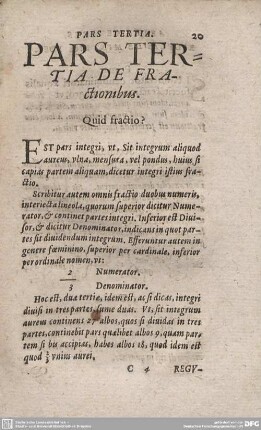 PARS TERTIA. 20
PARS TER=
TIA DE FRA-
ctionibus.
Quid fractio?
EST pars integri, vt, Sit integrum aliquod
aureus, vlna, mensura, vel pondus, huius si
capias partem aliquam, dicetur integri istius fra
ctio.
Scribitur autem omnis fractio duobus numeris,
interiecta lineola, quorum superior dicitur Nume-
rator, & continet partes integri. Inferior est Diui-
sor, & dicitur Denominator, indicans in quot par-
tes sit diuidendum integrum. Efferuntur autem in
genere fœminino, superior per cardinale, inferior
per ordinale nomen, vt:
2 Numerator.
3 Denominator.
Hoc est, duæ tertiæ, idem est, ac si dicas, integri
diuisi in tres partes, sume duas. Vt, sit integrum
aureus continens 27 albos, quos si diuidas in tres
partes, continebit pars quælibet albos 9, quam par-
tem si bu accipias, habes albos 18, quod idem est
quod 2/3 vnius aurei.
C 4 REGV-